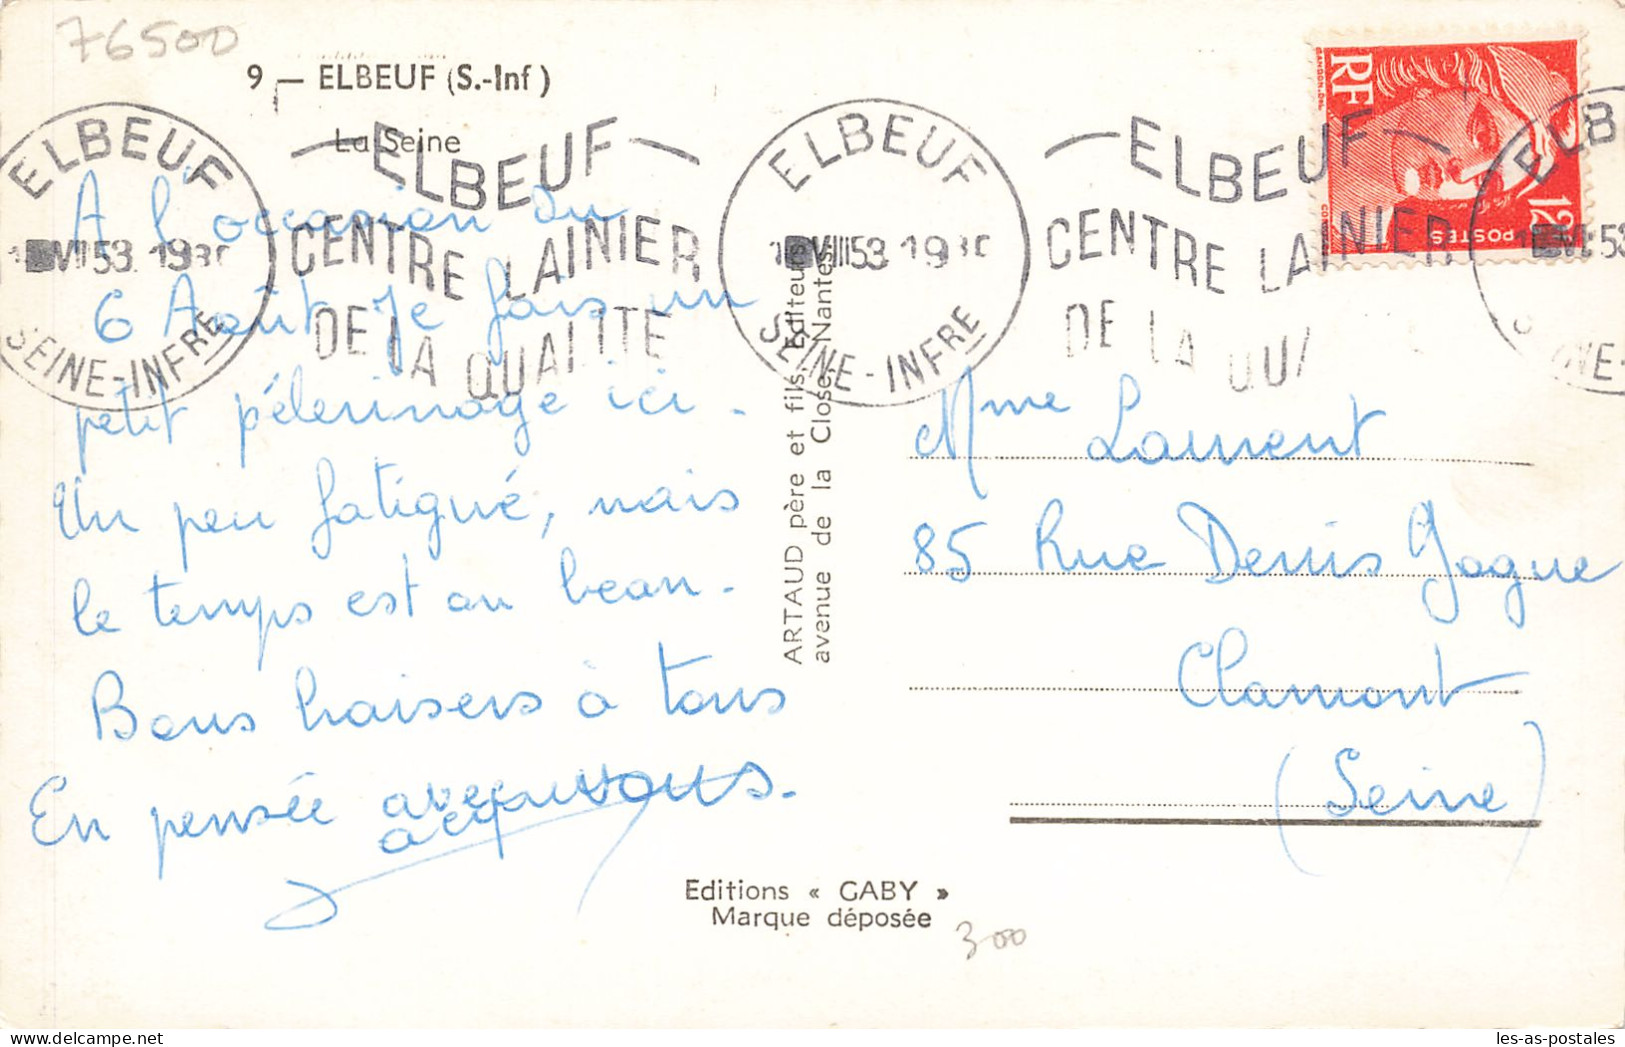 76500
9 — ELBEUF (S.-Inf)
La Seine
ELBEUF
VIII 53
SEINE-INFRE
ELBEUF
CENTRE LAINIER
DE LA QUALITE
ELBEUF
VIII 53
SEINE-INFRE
ELBEUF
CENTRE LAINIER
DE LA QU
RF
POSTES
12
A l'occasion du
6 Août je fais un
petit pélerinage ici.
Un peu fatigué, mais
le temps est au beau.
Bons baisers à tous
En pensée avec vous.
ARTAUD père et fils, Editeurs
avenue de la Close, Nantes
Mme Laurent
85 Rue Denis Gogue
Clamart
(Seine)
Editions « GABY »
Marque déposée
300
les-as-postales